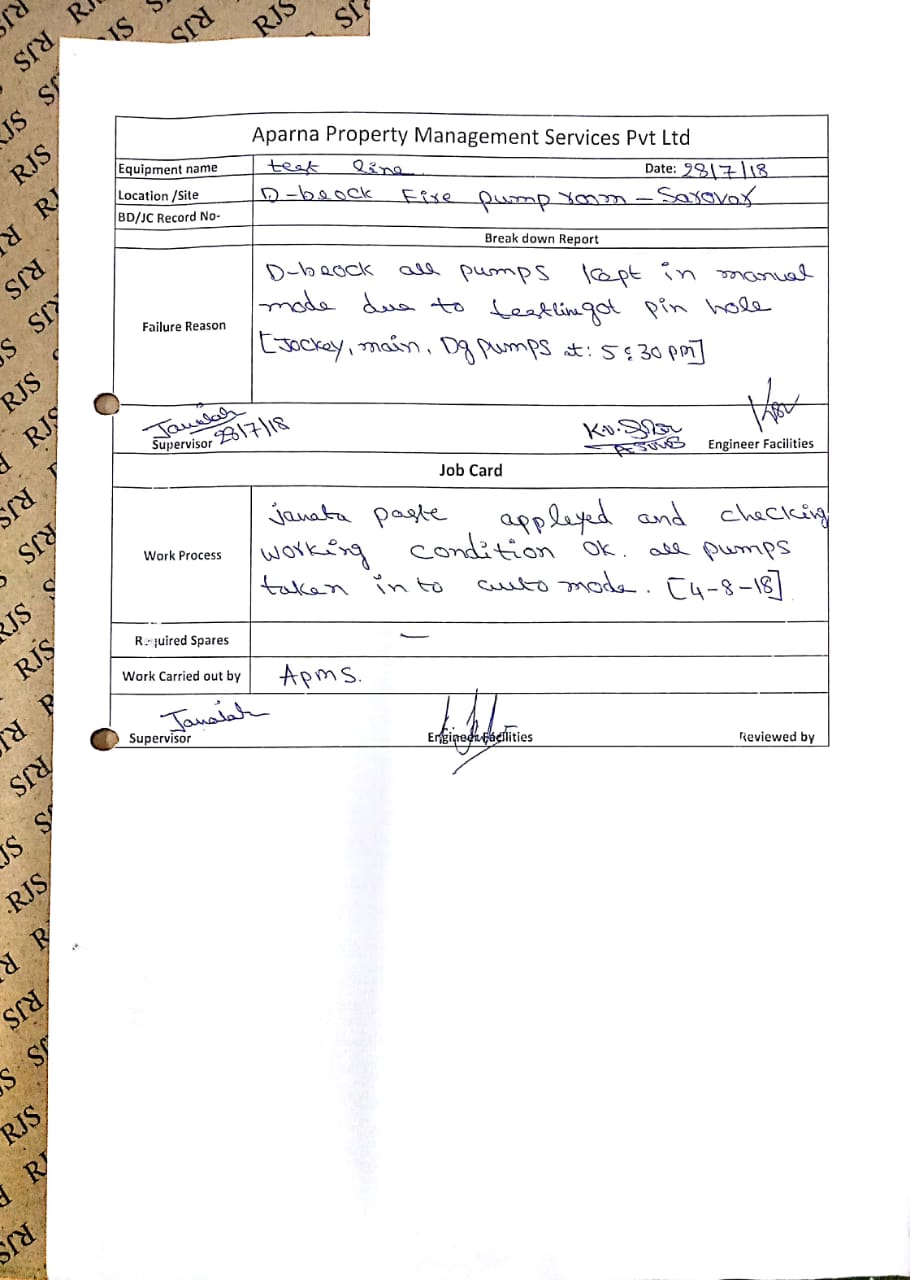 Aparna Property Management Services Pvt Ltd
Equipment name test line Date: 28/7/18
Location /Site D-block Fire pump room - Sarovar
BD/JC Record No-
Break down Report
Failure Reason
D-block all pumps kept in manual
mode due to testlinegot pin hole
[Jockey, main, Dg pumps at: 5:30 pm]
28/7/18
Supervisor Engineer Facilities
Job Card
Work Process
janata paste appleyed and checking
working condition ok. all pumps
taken in to auto mode. [4-8-18]
Required Spares —
Work Carried out by Apms.
Supervisor Engineer Facilities Reviewed by
RJS